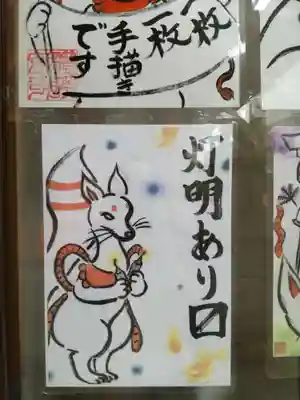 一枚
一枚
手描き
です
灯明あり〼